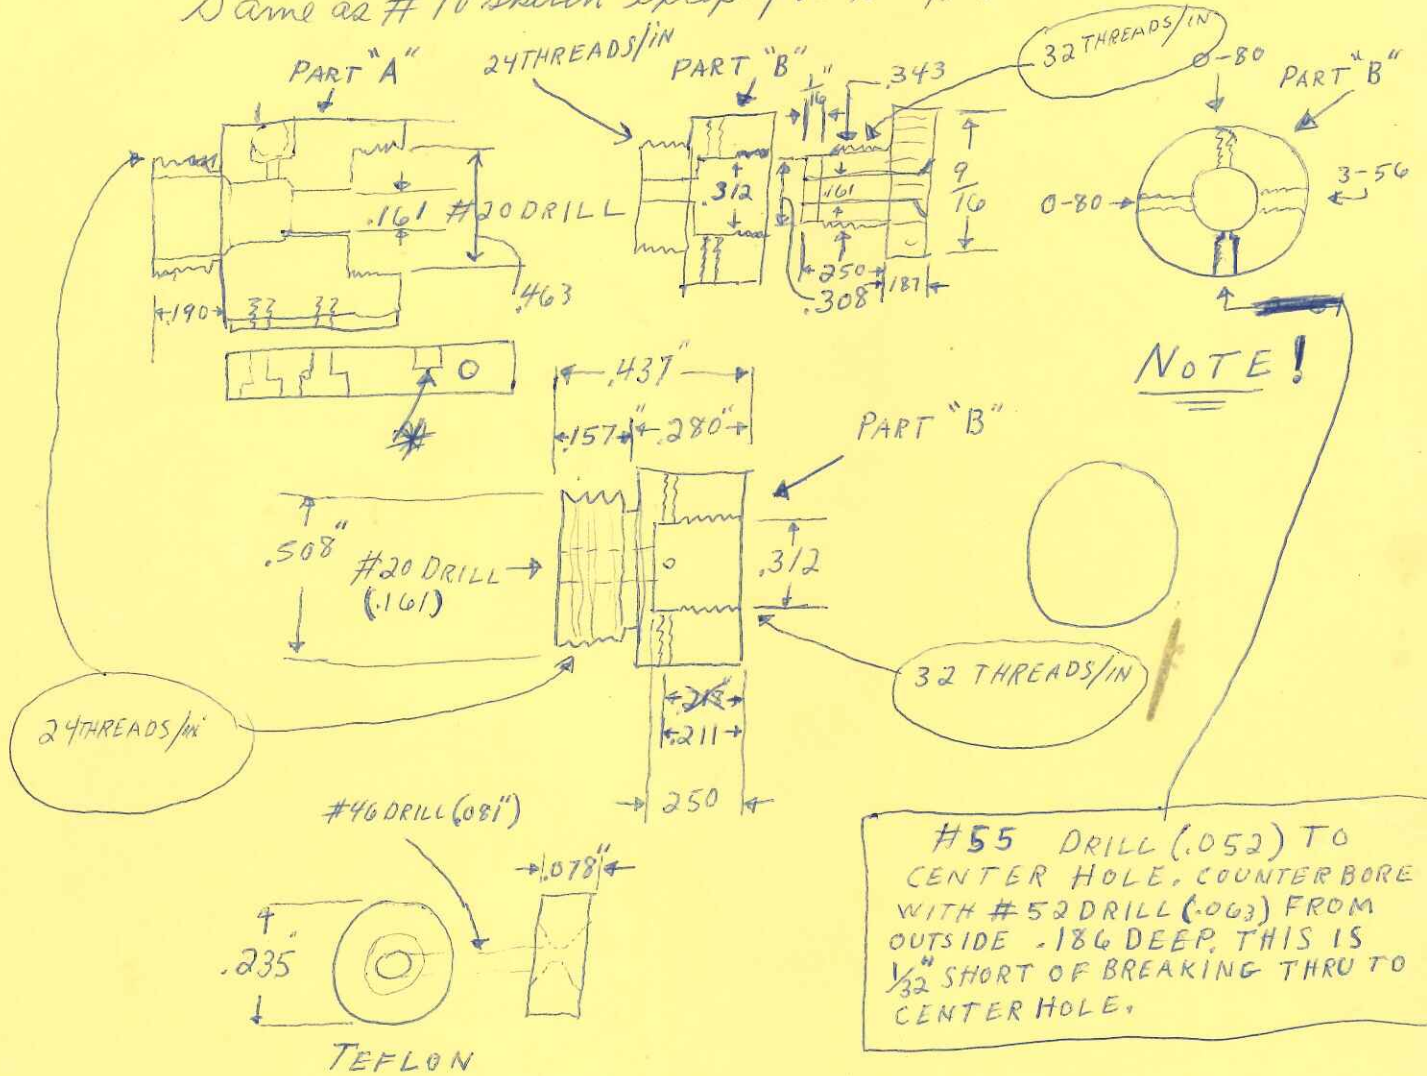 Same as # 10 sketch except
PART "A"
24 THREADS/IN
PART "B"
1/16"
.343
32 THREADS/IN
0-80
PART "B"
.161
#20 DRILL
.312
.161
9/16
0-80
3-56
.190
.463
.250
.308
.187
NOTE!
.437"
.157"
.280"
PART "B"
.508"
#20 DRILL
(.161)
.312
32 THREADS/IN
24 THREADS/IN
.218
.211
250
#46 DRILL (.081")
.078"
.235"
TEFLON
#55 DRILL (.052) TO
CENTER HOLE. COUNTERBORE
WITH #52 DRILL (.063) FROM
OUTSIDE .186 DEEP. THIS IS
1/32" SHORT OF BREAKING THRU TO
CENTER HOLE.